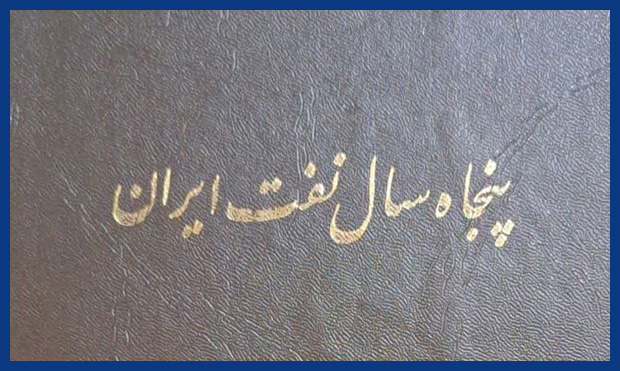 پنجاه سال نفت ایران